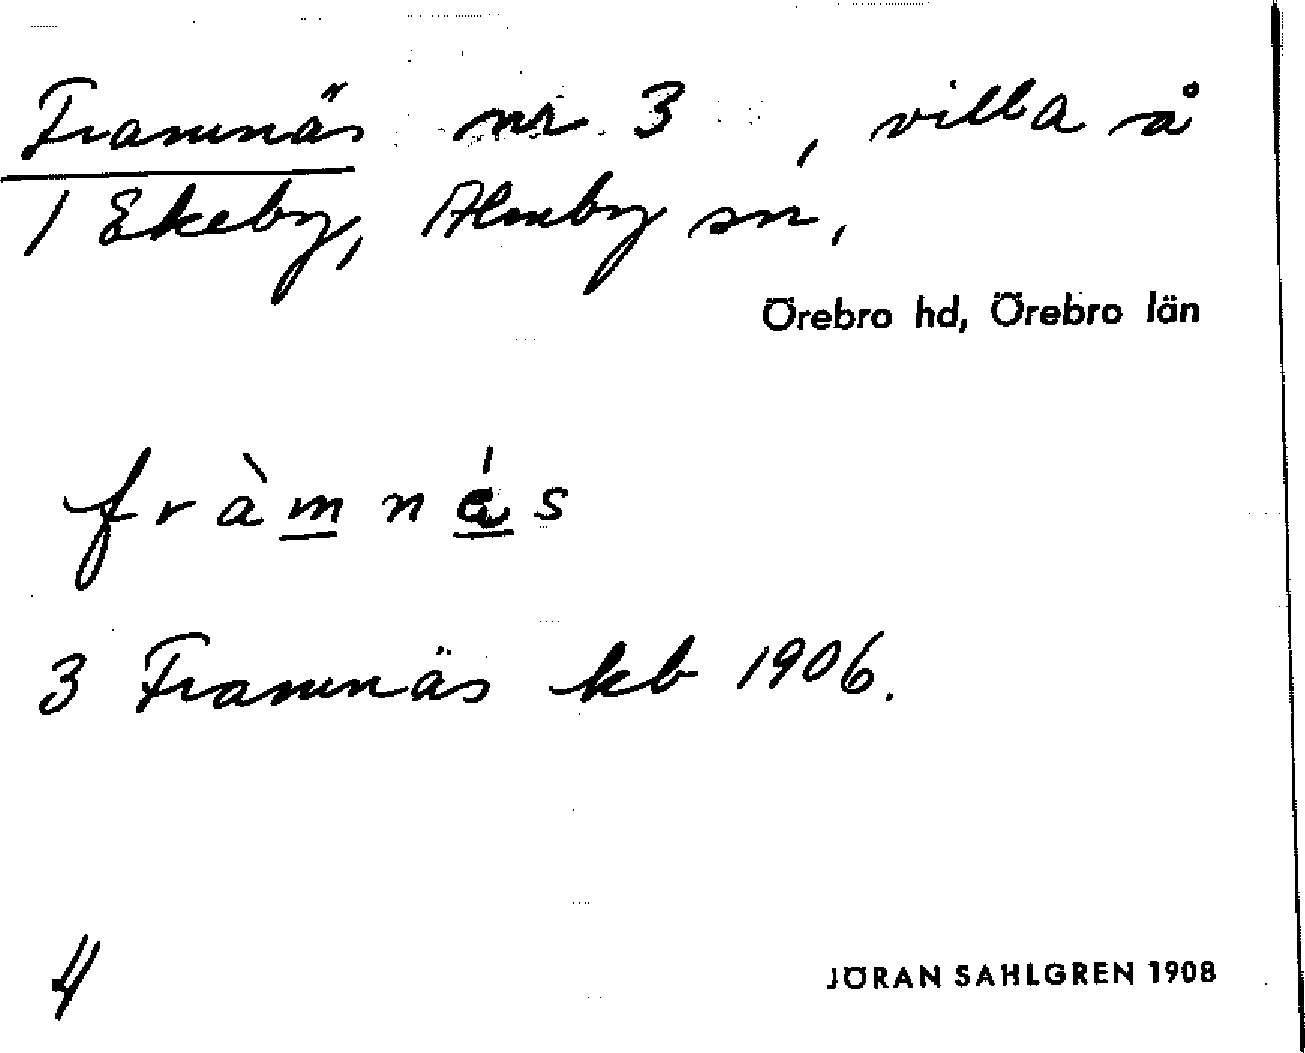 Framnäs nr 3, villa å
1 Ekeby, Almby sn,
Örebro hd, Örebro län
fràmnás
3 Framnäs kb 1906.
4
JÖRAN SAHLGREN 1908